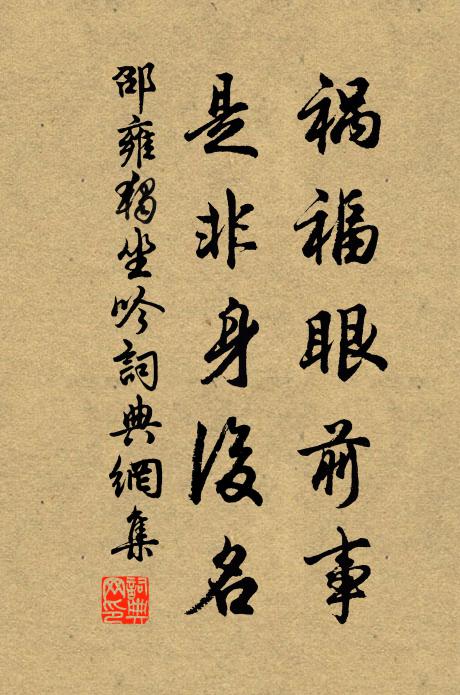 祸福眼前事
是非身後名
邵雍獨坐吟詞典網集
詞典
网印